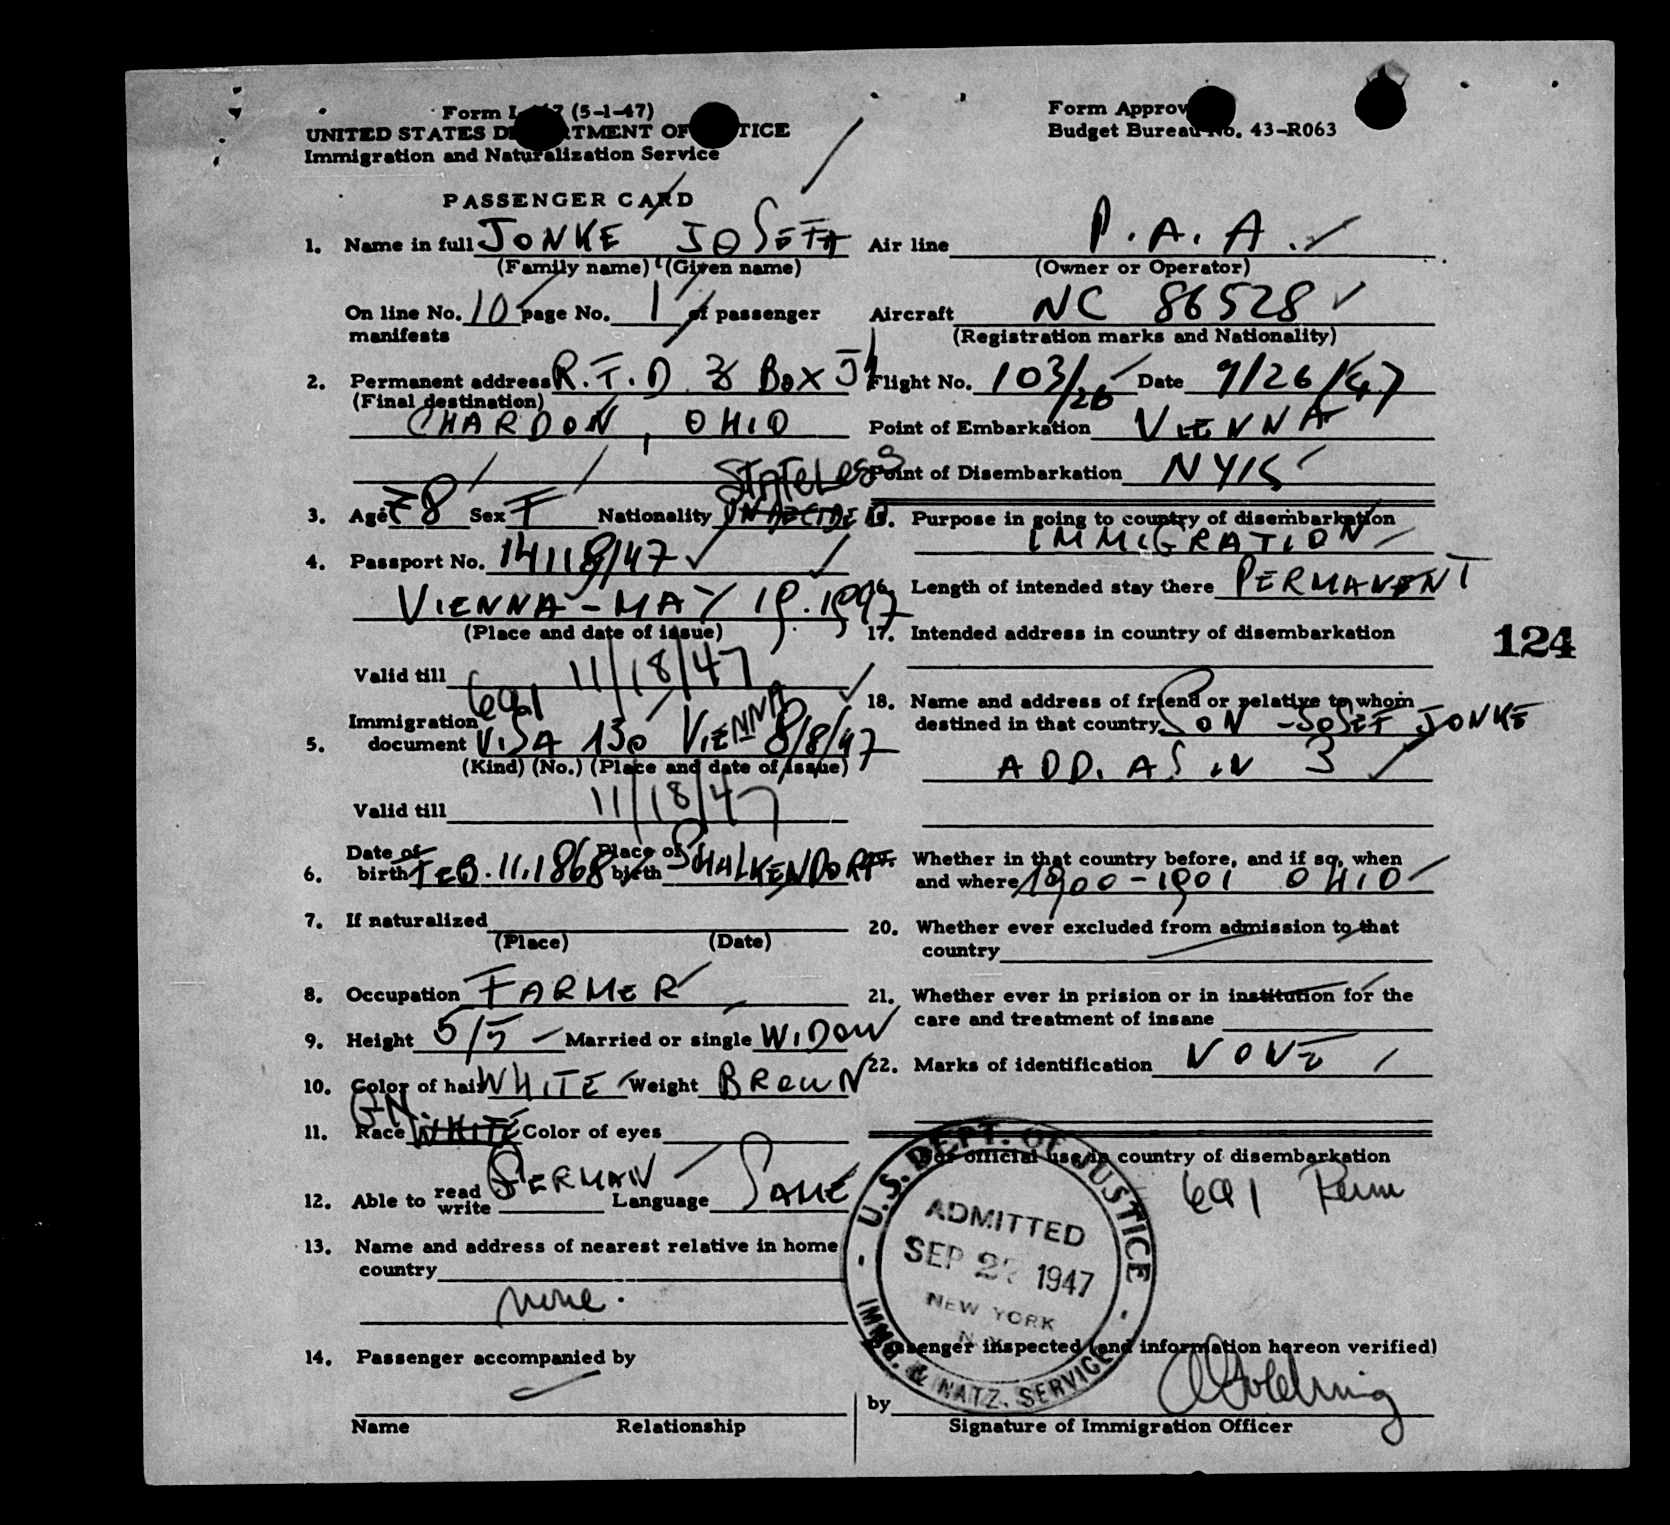 Form I- 7 (5-1-47)
UNITED STATES D TMENT OF TICE
Immigration and Naturalization Service
Form Approv
Budget Bureau No. 43-R063
PASSENGER CARD
1. Name in full JONKE JOSEFA
(Family name) (Given name)
Air line P.A.A.
(Owner or Operator)
On line No. 10 page No. 1 of passenger
manifests
Aircraft NC 86528
(Registration marks and Nationality)
2. Permanent address R.F.D. 3 BOX J1
(Final destination)
CHARDON, OHIO
Flight No. 103/26 Date 9/26/47
Point of Embarkation VIENNA
Point of Disembarkation NYK
STATELESS
3. Age 78 Sex F Nationality
4. Passport No. 14118/47
VIENNA - MAY 19.1947
(Place and date of issue)
Valid till 11/18/47
6a1
Immigration
5. document VISA 130 VIENNA 8/8/47
(Kind) (No.) (Place and date of issue)
Valid till 11/18/47
6. Date of birth FEB.11.1868 Place of birth SHALKENDORF
7. If naturalized
(Place) (Date)
8. Occupation FARMER
9. Height 5/5 Married or single WIDOW
10. Color of hair WHITE Weight BROWN
GN
11. Race WHITE Color of eyes
12. Able to read write GERMAN Language SAME
13. Name and address of nearest relative in home
country
none.
14. Passenger accompanied by
Name Relationship
15. Purpose in going to country of disembarkation
IMMIGRATION
16. Length of intended stay there PERMANENT
17. Intended address in country of disembarkation
124
18. Name and address of friend or relative to whom
destined in that country SON - JOSEF JONKE
ADD. AS IN 3
Whether in that country before, and if so, when
and where 1900-1901 OHIO
20. Whether ever excluded from admission to that
country
21. Whether ever in prision or in institution for the
care and treatment of insane
22. Marks of identification NONE
For official use in country of disembarkation
6a1 Perm
U.S. DEPT. OF JUSTICE
ADMITTED
SEP 2 1947
NEW YORK
N.Y.
IMMG. & NATZ. SERVICE
Passenger inspected (and information hereon verified)
by
Signature of Immigration Officer